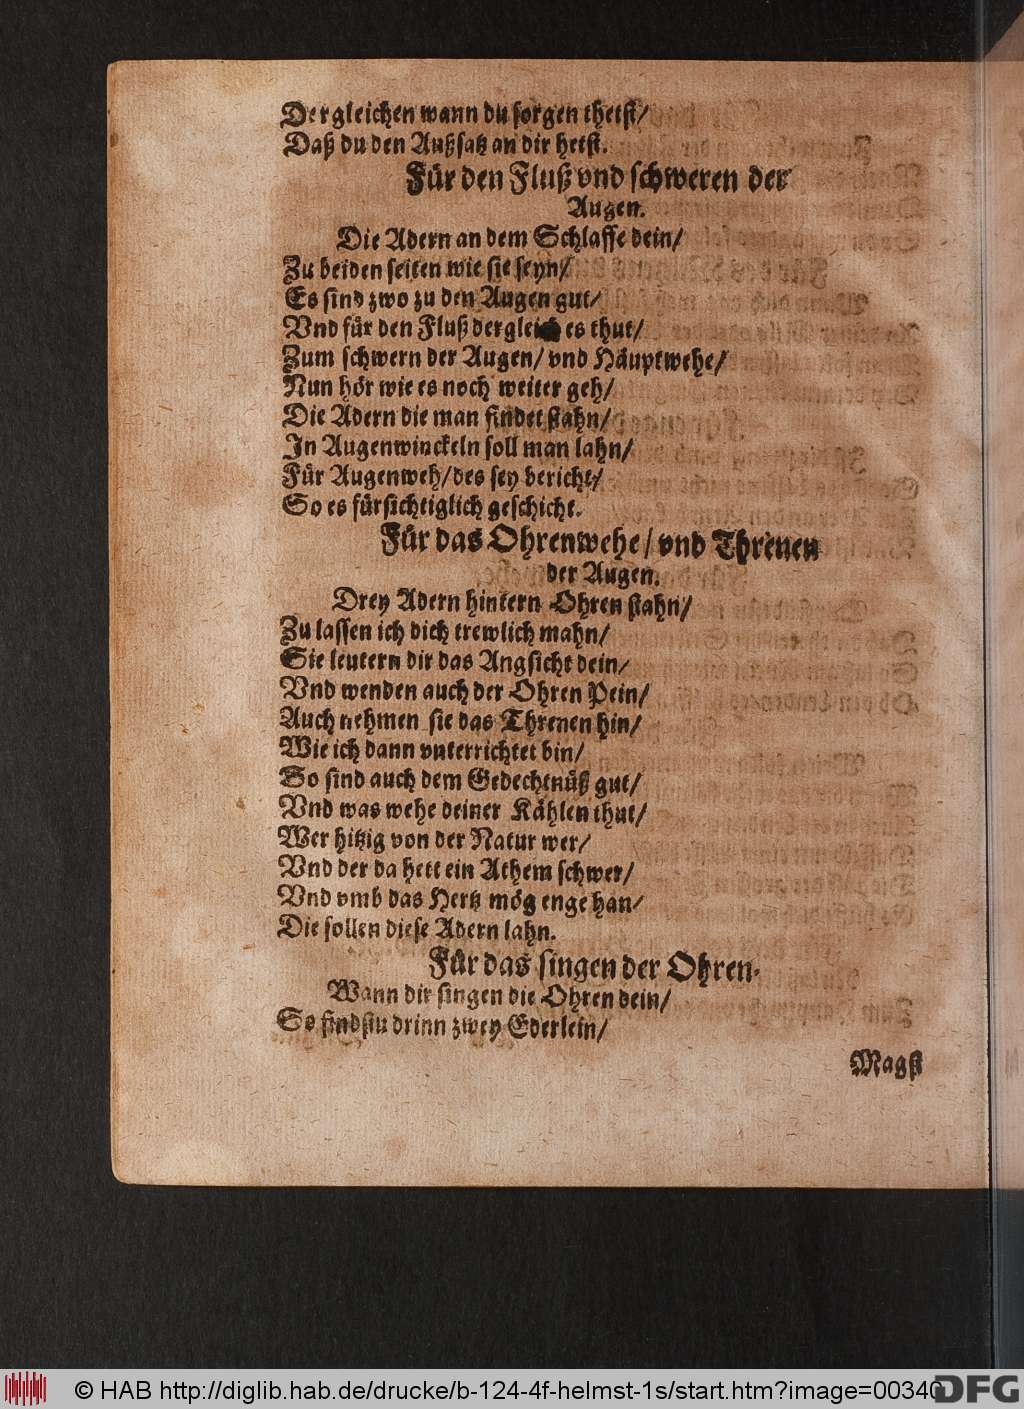 Dergleichen wann du sorgen thetst/
Daß du den Außsatz an dir hetst.
Für den Fluß vnd schweren der
Augen.
Die Adern an dem Schlaffe dein/
Zu beiden seiten wie sie seyn/
Es sind zwo zu den Augen gut/
Vnd für den Fluß dergleich es thut/
Zum schwern der Augen/ vnd Häuptwehe/
Nun hör wie es noch weiter geh/
Die Adern die man findet stahn/
In Augenwinckeln soll man lahn/
Für Augenweh/ des sey bericht/
So es fürsichtiglich geschicht.
Für das Ohrenwehe/ vnd Threnen
der Augen.
Drey Adern hintern Ohren stahn/
Zu lassen ich dich trewlich mahn/
Sie leutern dir das Angsicht dein/
Vnd wenden auch der Ohren Pein/
Auch nehmen sie das Threnen hin/
Wie ich dann vnterrichtet bin/
So sind auch dem Gedechtnüß gut/
Vnd was wehe deiner Kählen thut/
Wer hitzig von der Natur wer/
Vnd der da hett ein Athem schwer/
Vnd vmb das Hertz mög enge han/
Die sollen diese Adern lahn.
Für das singen der Ohren.
Wann dir singen die Ohren dein/
So findstu drinn zwey Ederlein/
Magst
© HAB http://diglib.hab.de/drucke/b-124-4f-helmst-1s/start.htm?image=00340
DFG